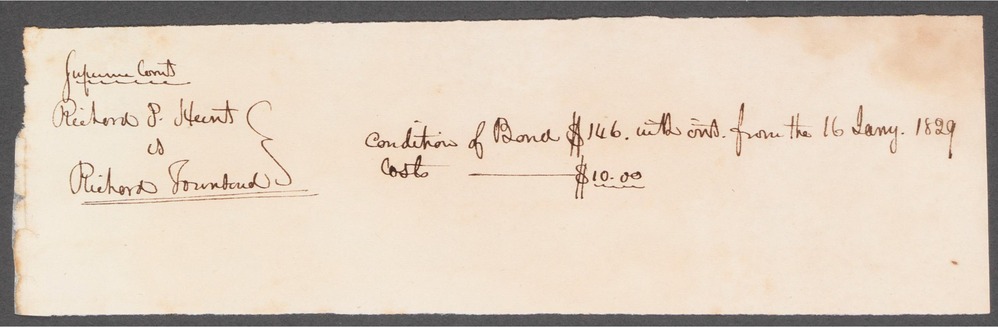 Supreme Court
Richard P. Hunt
vs
Richard Townsend
condition of Bond $146. with int. from the 16 Jany. 1829
Costs $10.00